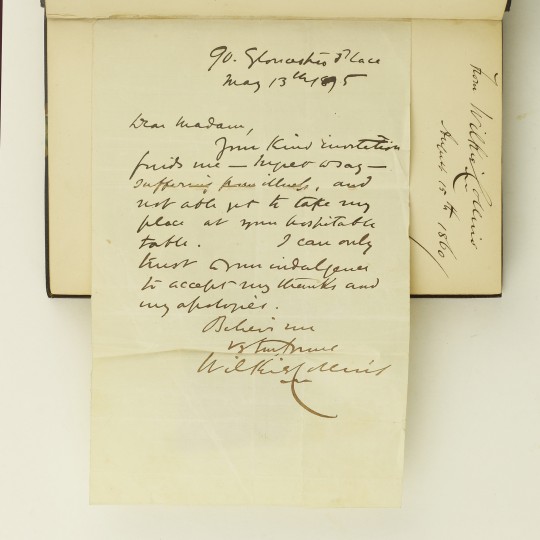 90. Gloucester Place
May 13th 1875
Dear Madam,
Your kind invitation
finds me — I regret to say —
suffering from illness, and
not able yet to take my
place at your hospitable
table. I can only
trust to your indulgence
to accept my thanks and
my apologies.
Believe me
Wilkie Collins
from Wilkie Collins
August 15th 1860